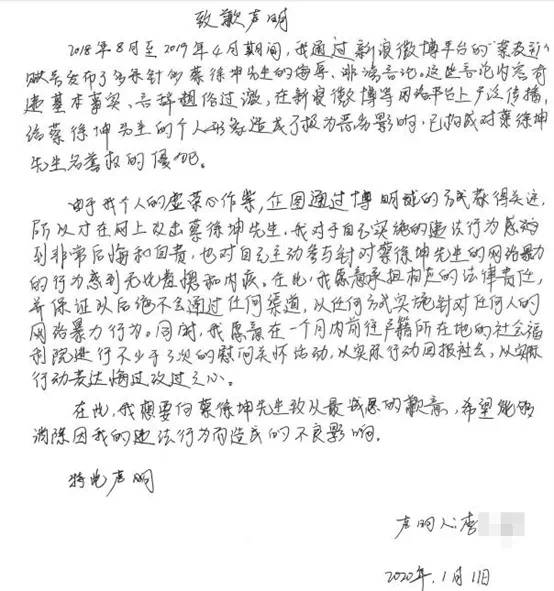 致歉声明
2018年8月至2019年4月期间,我通过新浪微博平台的"蔡
账号发布了多条针对蔡徐坤先生的侮辱、诽谤言论。这些言论内容有
违基本事实、言辞超俗过激,在新浪微博等网络平台上广泛传播,
给蔡徐坤先生的个人形象造成了极为恶劣影响,已构成对蔡徐坤
先生名誉权的侵犯。
由于我个人的虚荣心作祟,企图通过博眼球的方式获得关注,
所以才在网上攻击蔡徐坤先生,我对于自己实施的违法行为感
到非常后悔和自责,也对自己主动参与针对蔡徐坤先生的网络暴力
的行为感到无比羞愧和内疚。在此,我愿意承担相应的法律责任,
并保证以后绝不会通过任何渠道,以任何方式实施针对任何人的
网络暴力行为。同时,我愿意在一个月内前往户籍所在地的社会福
利院进行不少于3次的慰问关怀活动,以实际行动回报社会,以实际
行动表达悔过改过之心。
在此,我想要向蔡徐坤先生致以最诚恳的歉意,希望能够
消除因我的违法行为而造成的不良影响。
特此声明
声明人:李
2020年1月11日